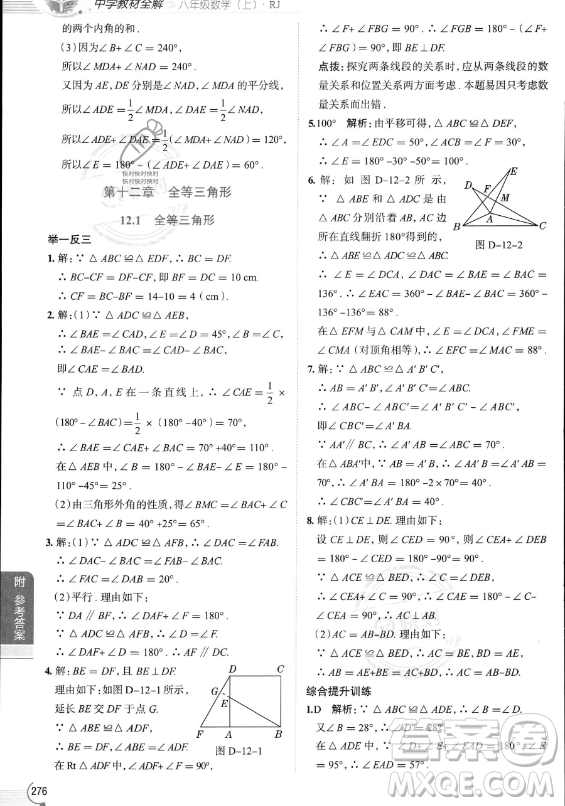 中学教材全解 八年级数学(上)·RJ
的两个内角的和.
(3)因为∠B+∠C=240°,
所以∠MDA+∠DAN=240°.
又因为AE,DE分别是∠NAD,∠MDA的平分线,
所以∠ADE=1/2∠MDA,∠DAE=1/2∠NAD.
所以∠ADE+∠DAE=1/2(∠MDA+∠NAD)=120°,
所以∠E=180°-(∠ADE+∠DAE)=60°.
第十二章 全等三角形
12.1 全等三角形
举一反三
1.解:∵△ABC≌△EDF,∴BC=DF.
∴BC-CF=DF-CF,即BF=DC=10 cm.
∴CF=BC-BF=14-10=4(cm).
2.解:(1)∵△ADC≌△AEB,
∴∠BAE=∠CAD,∠E=∠D=45°,∠B=∠C,
∴∠BAE-∠BAC=∠CAD-∠BAC,
即∠CAE=∠BAD.
∵点D,A,E在一条直线上,∴∠CAE=1/2×
(180°-∠BAC)=1/2×(180°-40°)=70°,
∴∠BAE=∠BAC+∠CAE=70°+40°=110°.
在△AEB中,∠B=180°-∠BAE-∠E=180°-
110°-45°=25°.
(2)由三角形外角的性质,得∠BMC=∠BAC+∠C=
∠BAC+∠B=40°+25°=65°.
3.解:(1)∵△ADC≌△AFB,∴∠DAC=∠FAB.
∴∠DAC-∠BAC=∠FAB-∠BAC.
∴∠FAC=∠DAB=20°.
(2)平行.理由如下:
∵DA∥BF,∴∠DAF+∠F=180°.
∵△ADC≌△AFB,∴∠ADF=∠F,
∴∠DAF+∠ADF=180°.∴AF∥DC.
4.解:BE=DF,且BE⊥DF.
理由如下:如图D-12-1所示,
延长BE交DF于点G.
∵△ABE≌△ADF,
∴BE=DF,
∠ABE=∠ADF.
在Rt△ADF中,∵∠ADF+∠F=90°,
D C G E F A B
图D-12-1
∴∠F+∠ABE=90°,即∠F+
∠FBG=90°.∴∠FGB=180°-(∠F+
∠FBG)=90°.∴BE⊥DF.
点拨:探究两条线段的关系时,应从两条线段的数
量关系和位置关系两方面考虑.本题易因只考虑数
量关系而出错.
5.100° 解析:由平移可得,△ABC≌△DEF,
∴∠A=∠EDC=50°,∠ACB=∠F=30°,
∴∠ABC=180°-30°-50°=100°.
6.解:如图D-12-2所示,
∵△ABE和△ADC是△
ABC分别沿着AB,AC边
翻折180°得到的,
∴△ABC≌△ABE,△ABC≌△ADC,
∴∠E=∠DCA=∠ACB,∠BAE=∠BAC=
136°.∴∠CAE=360°-∠BAE-∠BAC=360°-
136°-136°=88°.
D E F M A B C
图D-12-2
在△EFM与△CAM中,∠E=∠DCA,∠FME=
∠CMA(对顶角相等),∴∠EFC=∠MAC=88°.
7.解:∵△ABC≌△A'B'C',
∴AB=A'B',∠A'B'C'=∠ABC.
∴∠ABC-∠A'BC=∠A'B'C'-∠A'BC',
即∠CBC'=∠A'BA.
∵AA'∥BC,∴∠A'AB=∠ABC=70°.
在△ABA'中,∵AB=A'B,∴∠AA'B=∠A'AB=70°,
∴∠A'BA=180°-2×70°=40°.
∴∠CBC'=∠A'BA=40°.
8.解:(1)CE⊥DE.理由如下:
设CE⊥DE,则∠CED=90°,所以∠AEC+
∠BED=180°-∠CED=180°-90°=90°.
∵△ACE≌△BED,∴∠C=∠BED,
∴∠CEA+∠C=90°,
∴∠CAE=180°-(∠CEA+∠C)=180°-90°=
90°,∴AC⊥AB.
(2)AC=AB-BD.理由如下:
∵△ACE≌△BED,∴AC=BE,AE=BD.
∴AB=AE+BE=BD+AC,∴AC=AB-BD.
综合提升训练
1.D 解析:∵△ABC≌△ADE,∴∠B=∠D.
又∠B=28°,∴∠D=28°.
在△ADE中,∠D+∠E+∠EAD=180°,∠E=
95°,∴∠EAD=57°.
附 参考答案
276
答案圈
MXQE.COM
快对